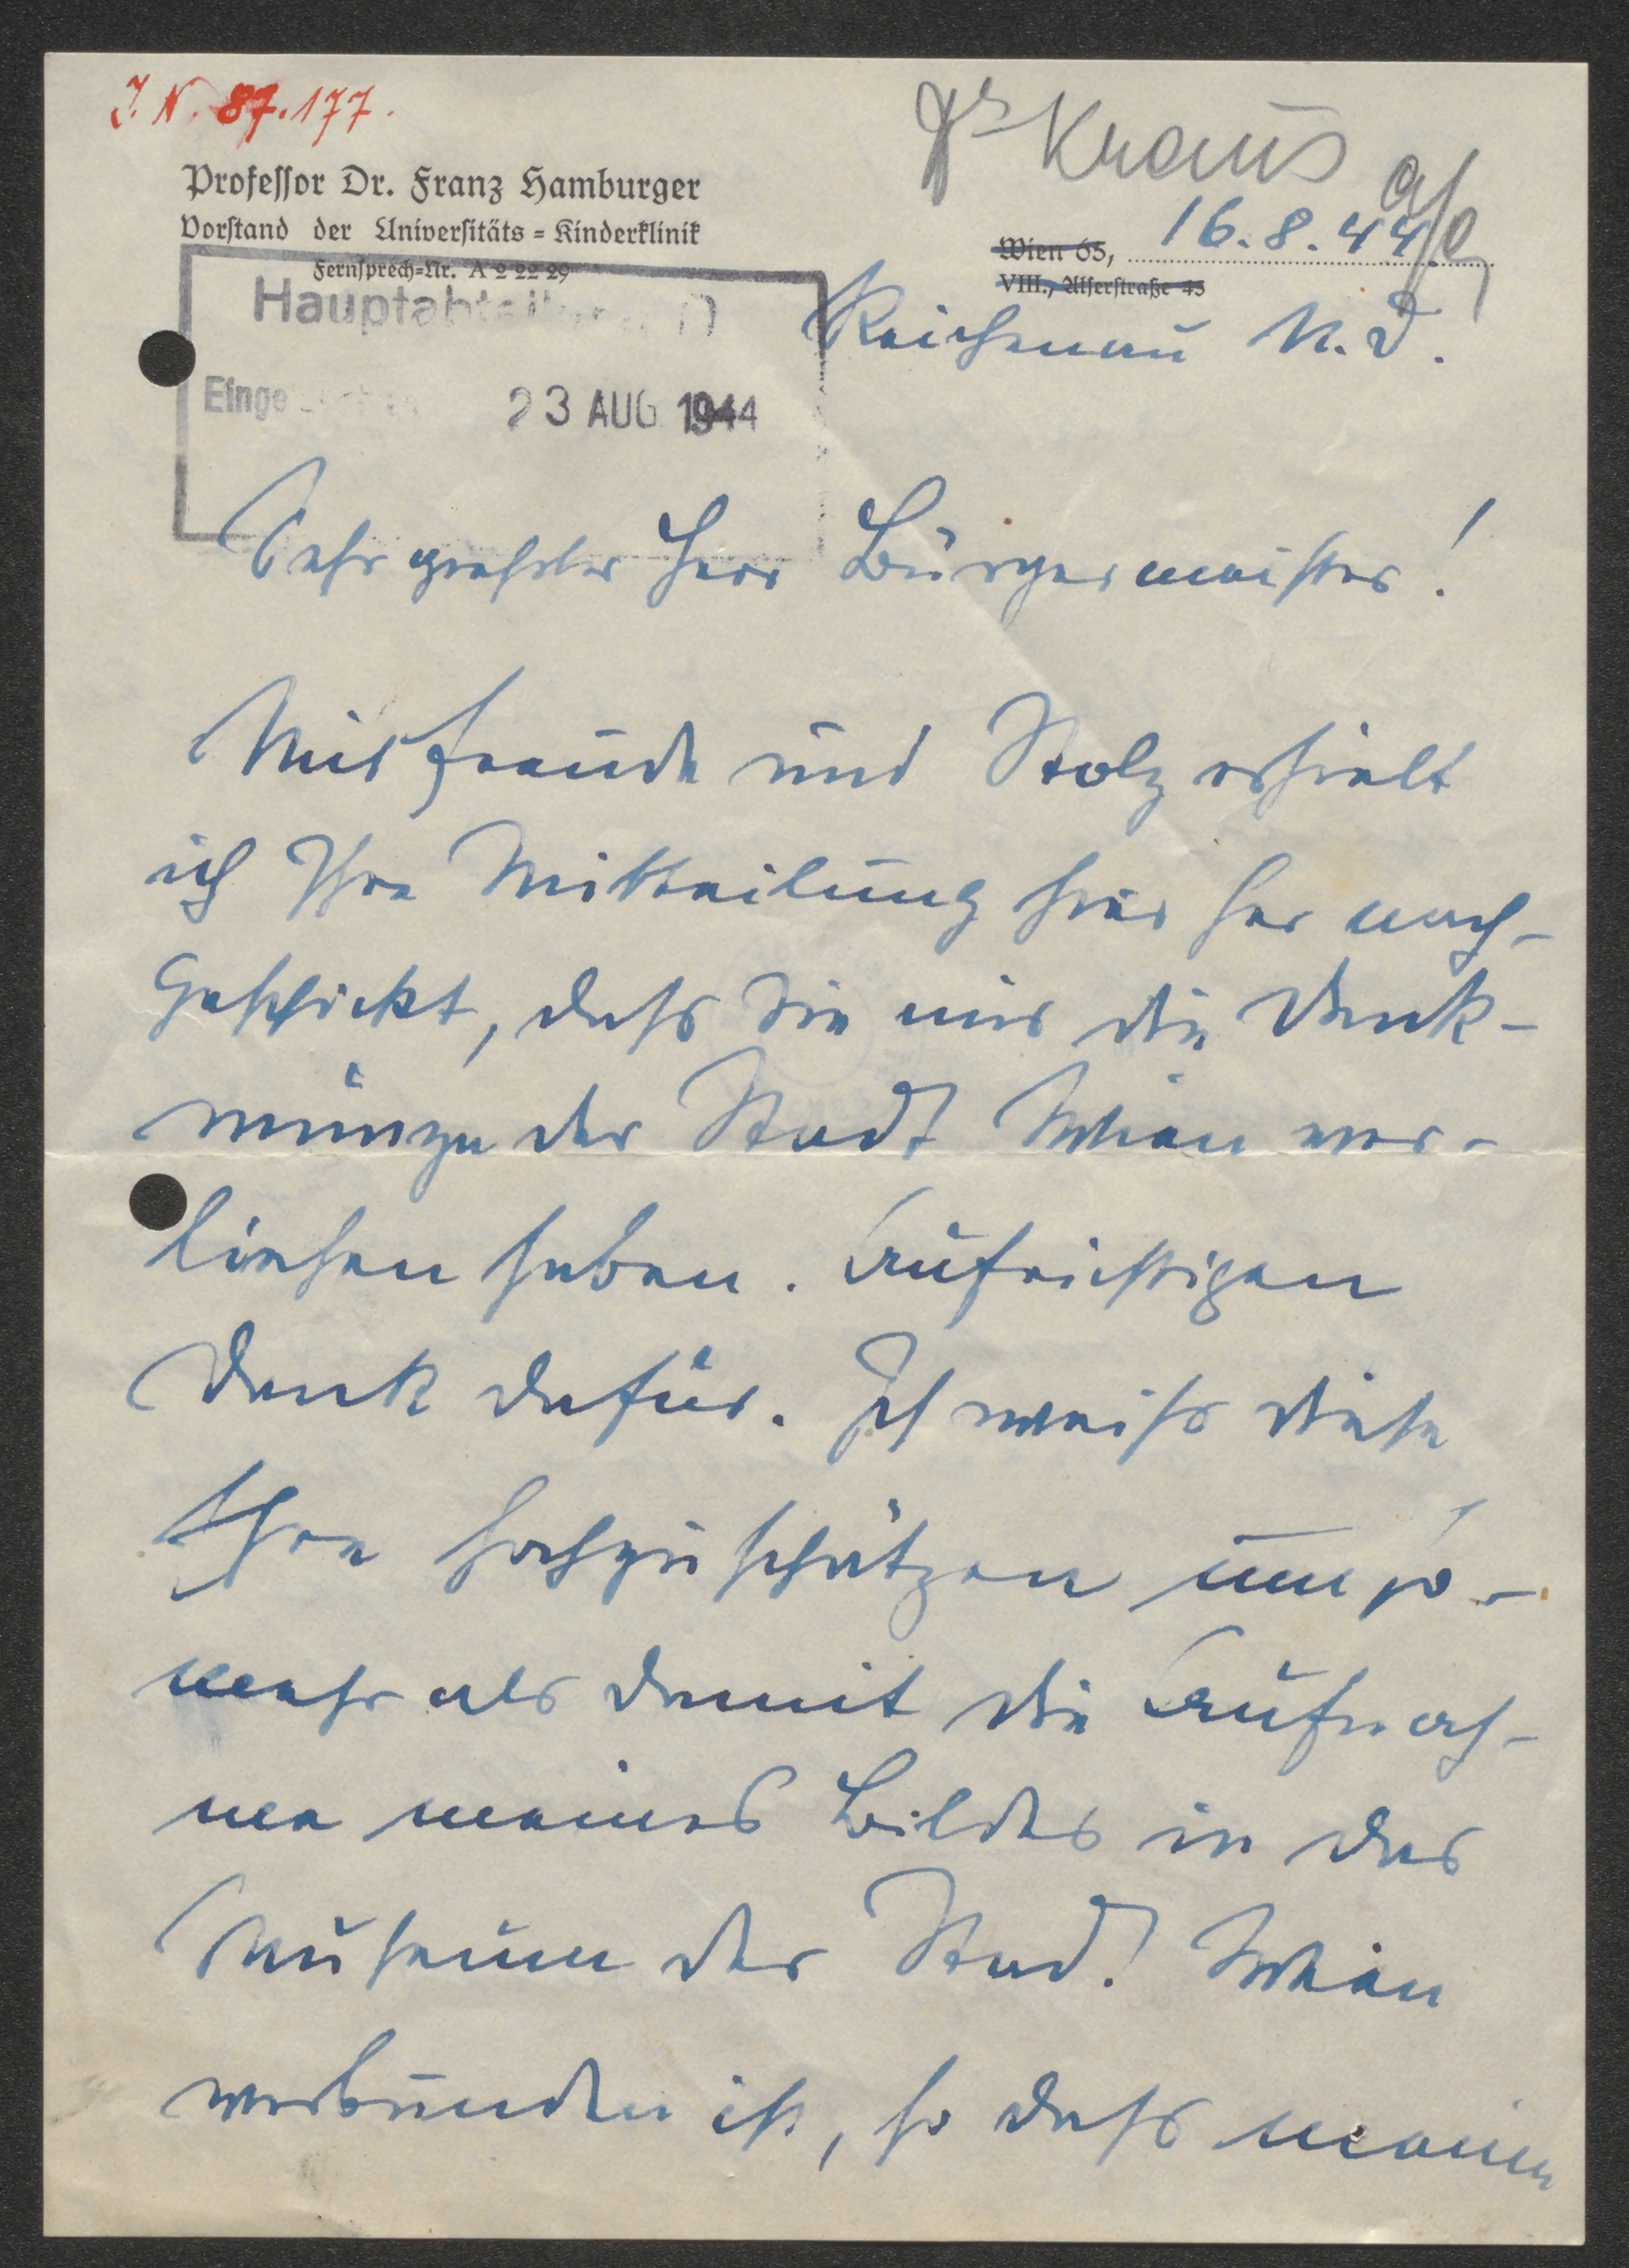 J. N. 87.177.
Dr Kraus
Professor Dr. Franz Hamburger
Vorstand der Universitäts=Kinderklinik
Fernsprech=Nr. A 2 22 29
Wien 65, 16.8.44
VIII., Alserstraße 45
Hauptabteilung
Reichenau N.D.
Einge
23 AUG 1944
Sehr geehrter Herr Bürgermeister!
Mit Freude und Stolz erhielt
ich Ihre Mitteilung hier her nach-
geschickt, dass Sie mir die Denk-
münze der Stadt Wien ver-
liehen haben. Aufrichtigen
Dank dafür. Ich weiss diese
Ehre hochzuschätzen umso-
mehr als damit die Aufnah-
me meines Bildes in das
Museum der Stadt Wien
verbunden ist, so dass meine